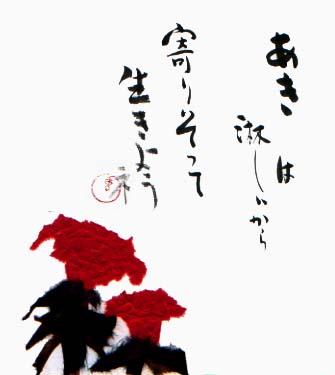 あき は
淋しいから
寄りそって
生きよう